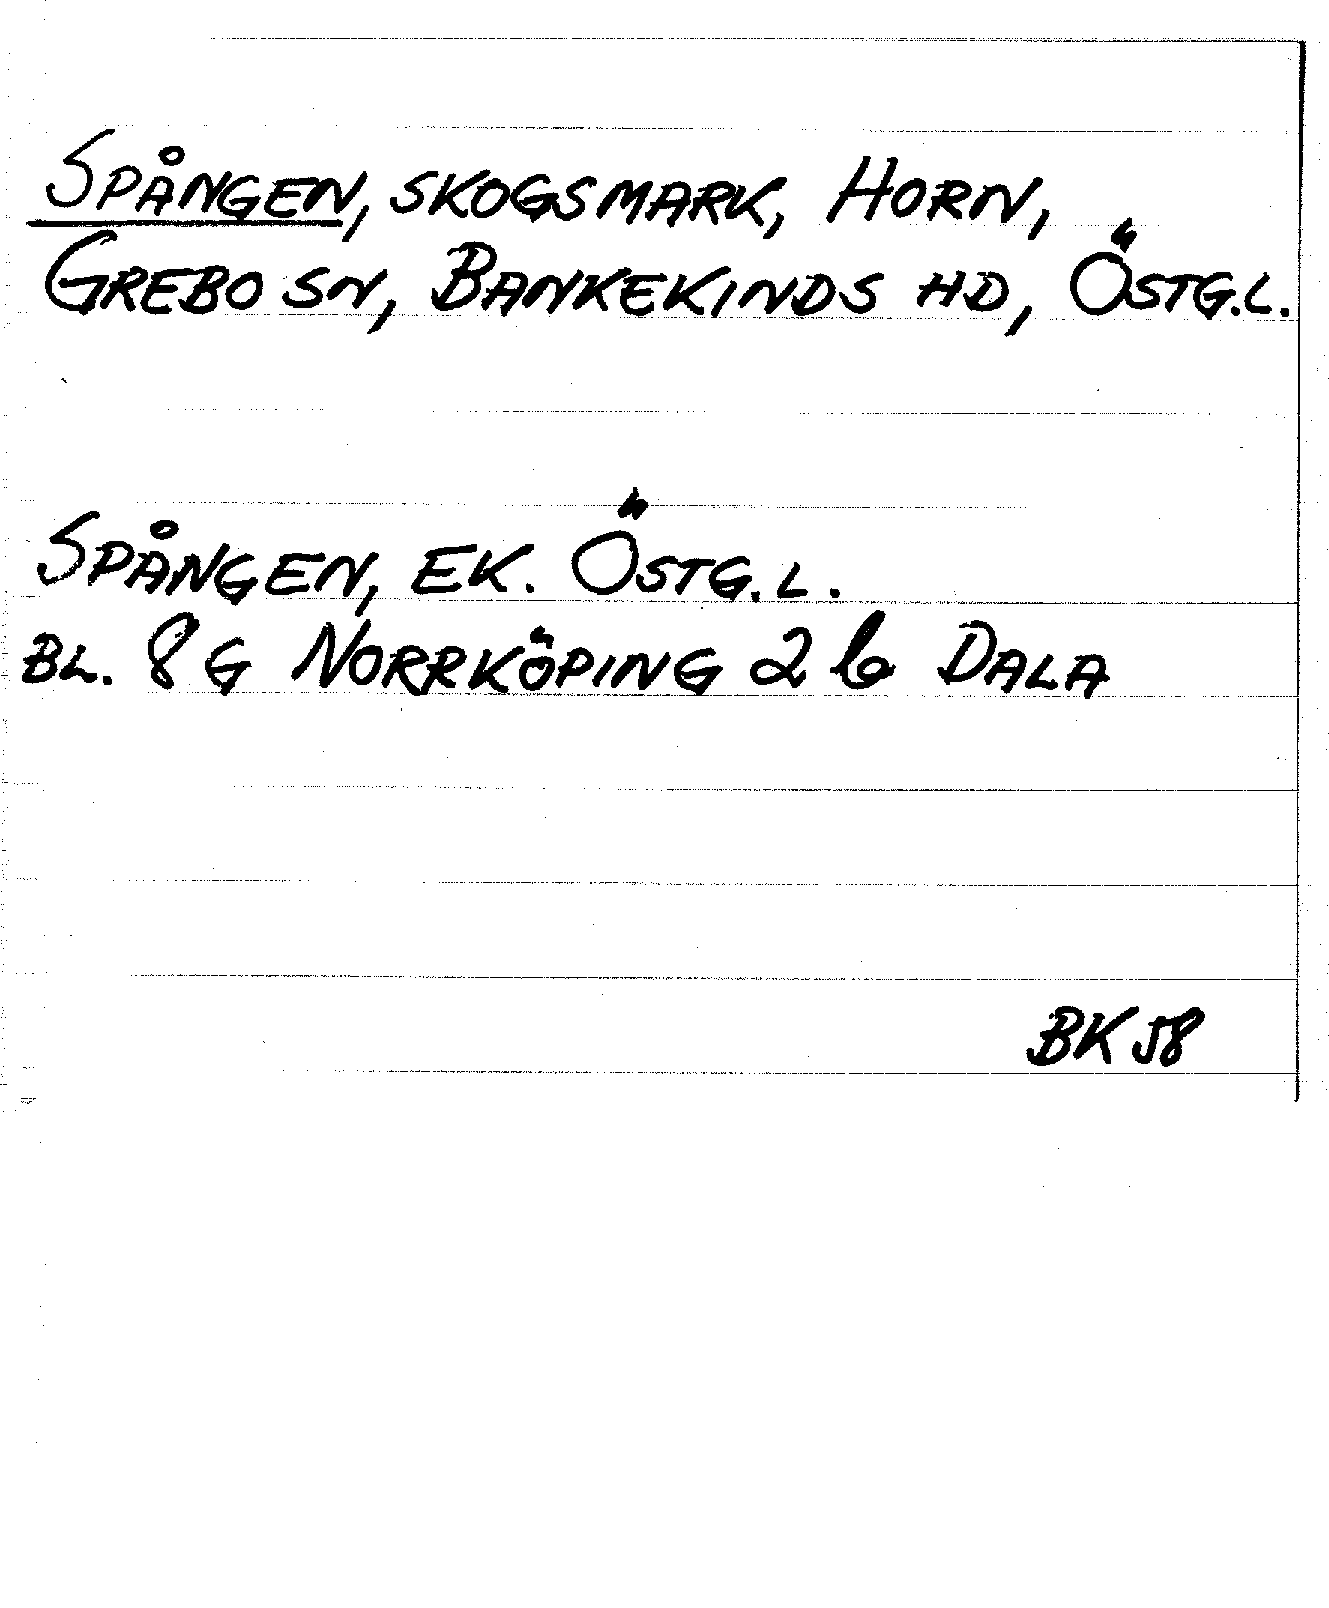 SPÅNGEN, SKOGSMARK, HORN,
GREBO SN, BANKEKINDS HD, ÖSTG.L.
SPÅNGEN, EK. ÖSTG.L.
BL. 8 G NORRKÖPING 2 b DALA
BK 58